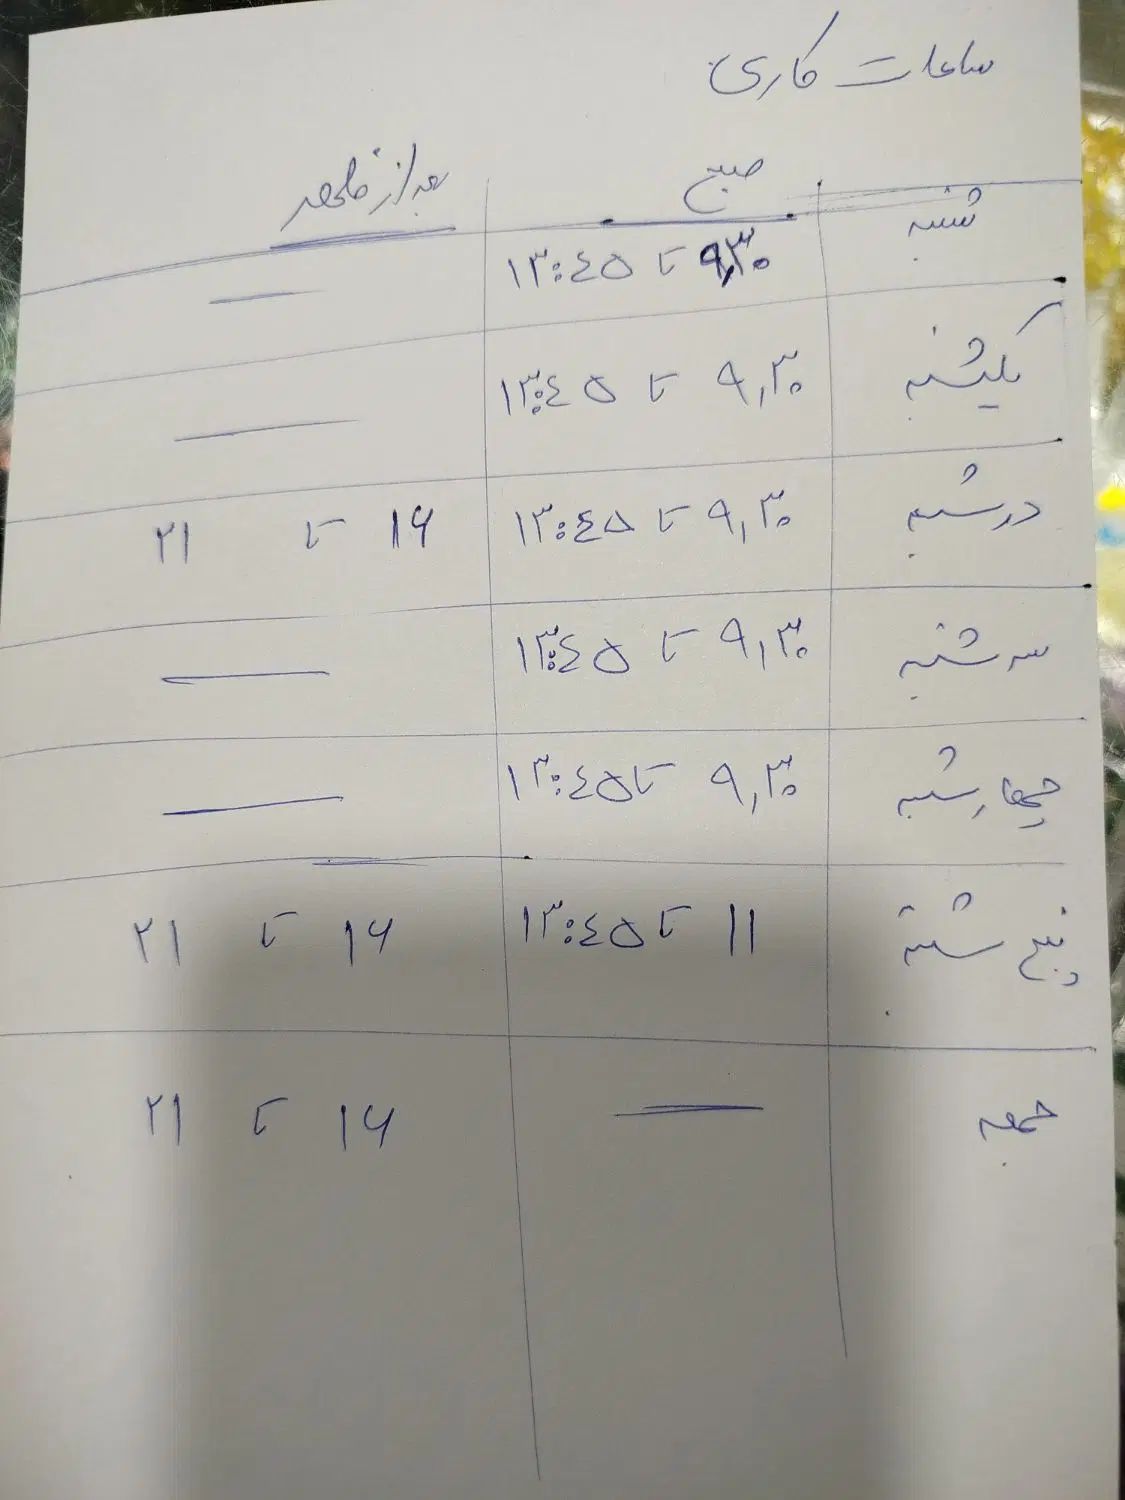 ساعات کاری
صبح بعد از ظهر
شنبه ۹,۳۰ تا ۱۳:۴۵ —
یکشنبه ۹,۳۰ تا ۱۳:۴۵ —
دوشنبه ۹,۳۰ تا ۱۳:۴۵ ۱۶ تا ۲۱
سه شنبه ۹,۳۰ تا ۱۳:۴۵ —
چهارشنبه ۹,۳۰ تا ۱۳:۴۵ —
پنج شنبه ۱۱ تا ۱۳:۴۵ ۱۶ تا ۲۱
جمعه — ۱۶ تا ۲۱